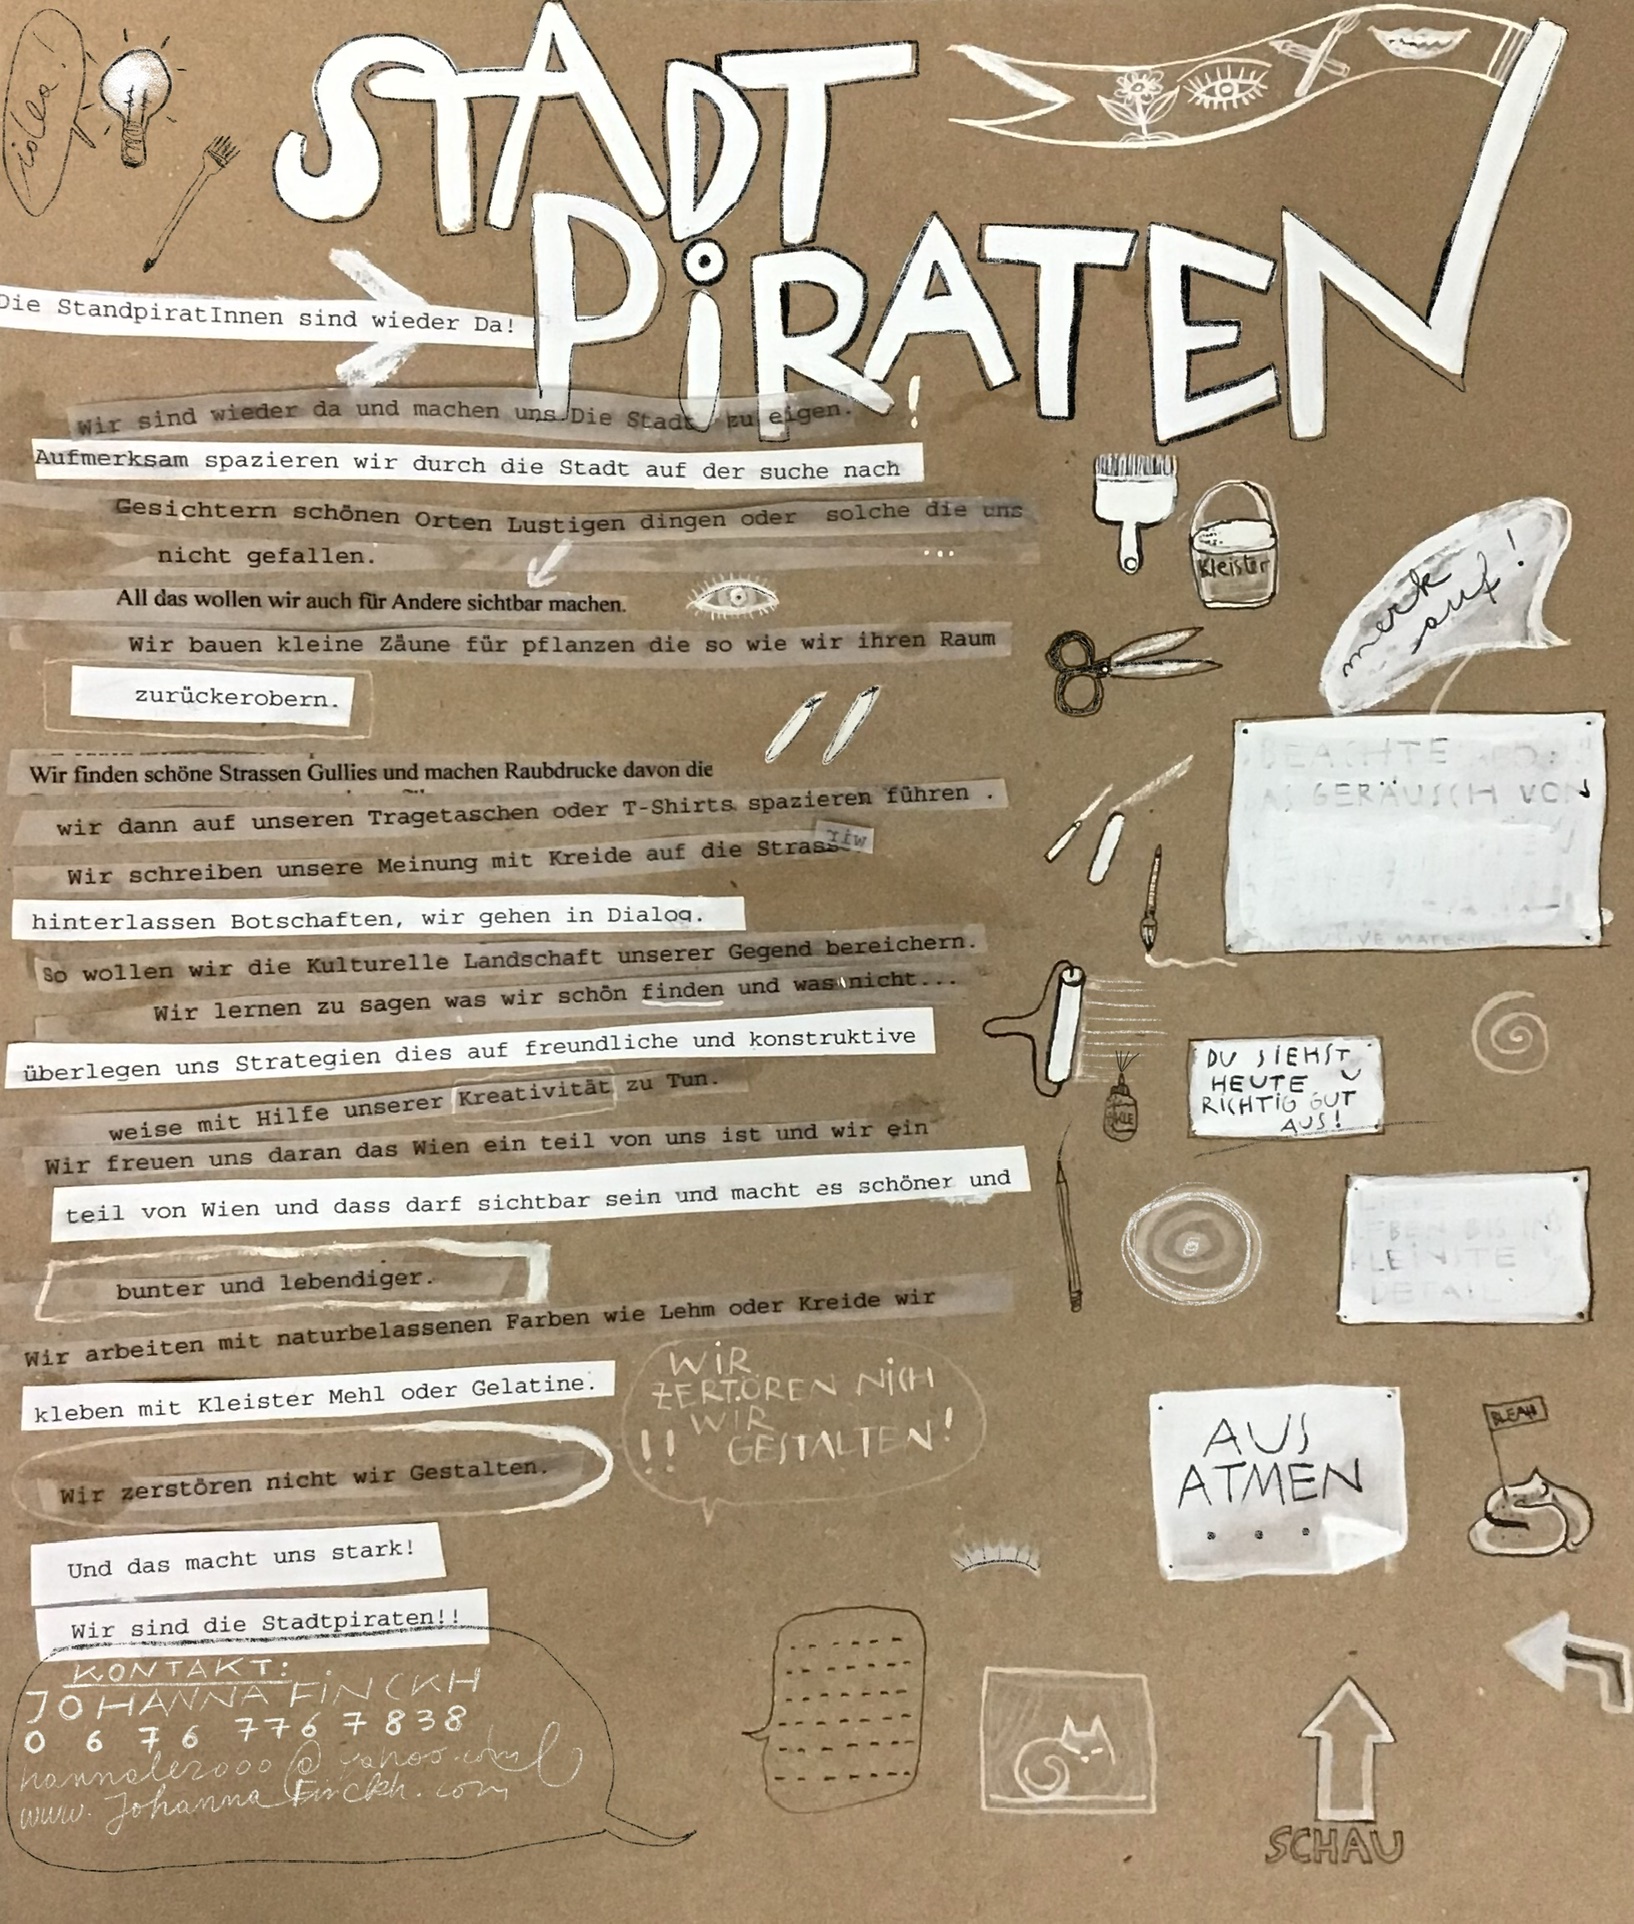 idea!
STADT
PiRATEN
Die StandpiratInnen sind wieder Da!
Wir sind wieder da und machen uns Die Stadt zu eigen.!
Aufmerksam spazieren wir durch die Stadt auf der suche nach
Gesichtern schönen Orten Lustigen dingen oder solche die uns
nicht gefallen. ...
All das wollen wir auch für Andere sichtbar machen.
Wir bauen kleine Zäune für pflanzen die so wie wir ihren Raum
zurückerobern.
Wir finden schöne Strassen Gullies und machen Raubdrucke davon die
wir dann auf unseren Tragetaschen oder T-Shirts spazieren führen .
Wir schreiben unsere Meinung mit Kreide auf die Strasse wir
hinterlassen Botschaften, wir gehen in Dialog.
So wollen wir die Kulturelle Landschaft unserer Gegend bereichern.
Wir lernen zu sagen was wir schön finden und was nicht...
überlegen uns Strategien dies auf freundliche und konstruktive
weise mit Hilfe unserer Kreativität zu Tun.
Wir freuen uns daran das Wien ein teil von uns ist und wir ein
teil von Wien und dass darf sichtbar sein und macht es schöner und
bunter und lebendiger.
Wir arbeiten mit naturbelassenen Farben wie Lehm oder Kreide wir
kleben mit Kleister Mehl oder Gelatine.
Wir zerstören nicht wir Gestalten.
Und das macht uns stark!
Wir sind die Stadtpiraten!!
KONTAKT:
JOHANNA FiNCKH
0 6 7 6 7 7 6 7 8 3 8
hannale2000@yahoo.com
www.JohannaFinckh.com
WiR
ZERTÖREN NiCH
WIR
!! GESTALTEN!
Kleister
merk
auf!
BEACHTE
GERÄUSCH VON
DU SIEHST
HEUTE
RICHTIG GUT
AUS!
LEBEN BIS INS
KLEINSTE
DETAIL
AUS
ATMEN
. . .
BLEAH
SCHAU